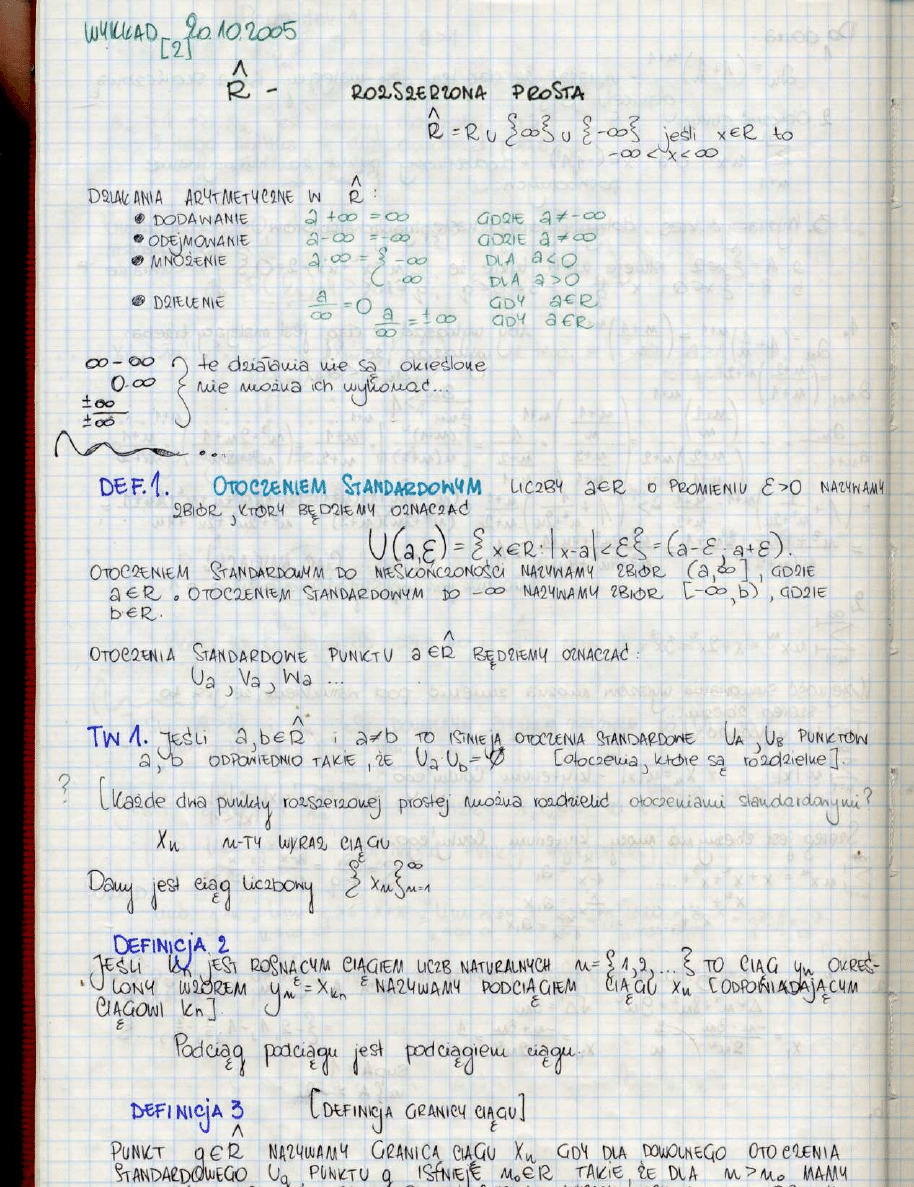 WYKŁAD [2] 20.10.2005
R̂ - ROZSZERZONA PROSTA
R̂ = R ∪ {∞} ∪ {-∞} jeśli x∈R to
-∞ < x < ∞
DZIAŁANIA ARYTMETYCZNE W R̂:
• DODAWANIE a + ∞ = ∞ GDZIE a ≠ -∞
• ODEJMOWANIE a - ∞ = -∞ GDZIE a ≠ ∞
• MNOŻENIE a·∞ = { -∞ DLA a < 0
∞ DLA a > 0
• DZIELENIE a/∞ = 0 GDY a∈R
a/∞ = ±∞ GDY a∈R
∞ - ∞ } te działania nie są określone
0·∞ nie można ich wykonać...
±∞/±∞
...
DEF.1. OTOCZENIEM STANDARDOWYM LICZBY a∈R O PROMIENIU ε>0 NAZYWAMY
ZBIÓR, KTÓRY BĘDZIEMY OZNACZAĆ
U(a,ε) = {x∈R: |x-a| < ε} = (a-ε; a+ε).
OTOCZENIEM STANDARDOWYM DO NIESKOŃCZONOŚCI NAZYWAMY ZBIÓR (a,∞], GDZIE
a∈R. OTOCZENIEM STANDARDOWYM DO -∞ NAZYWAMY ZBIÓR [-∞,b), GDZIE
b∈R.
OTOCZENIA STANDARDOWE PUNKTU a∈R̂ BĘDZIEMY OZNACZAĆ:
Ua, Va, Wa ...
TW 1. JEŚLI a,b∈R̂ i a≠b TO ISTNIEJĄ OTOCZENIA STANDARDOWE UA, UB PUNKTÓW
a, b ODPOWIEDNIO TAKIE, ŻE Ua·Ub = ∅ [otoczenia, które są rozdzielne].
? [Każde dwa punkty rozszerzonej prostej można rozdzielić otoczeniami standardowymi?
Xn n-TY WYRAZ CIĄGU
Dany jest ciąg liczbowy {Xn}∞n=1
DEFINICJA 2
JEŚLI kn JEST ROSNĄCYM CIĄGIEM LICZB NATURALNYCH n={1,2,...} TO CIĄG yn OKREŚ-
LONY WZOREM yn = Xkn NAZYWAMY PODCIĄGIEM CIĄGU Xn [ODPOWIADAJĄCYM
CIĄGOWI kn].
Podciąg podciągu jest podciągiem ciągu.
DEFINICJA 3 [DEFINICJA GRANICY CIĄGU]
PUNKT g∈R̂ NAZYWAMY GRANICĄ CIĄGU Xn GDY DLA DOWOLNEGO OTOCZENIA
STANDARDOWEGO Ug PUNKTU g ISTNIEJE n₀∈R TAKIE ŻE DLA n>n₀ MAMY